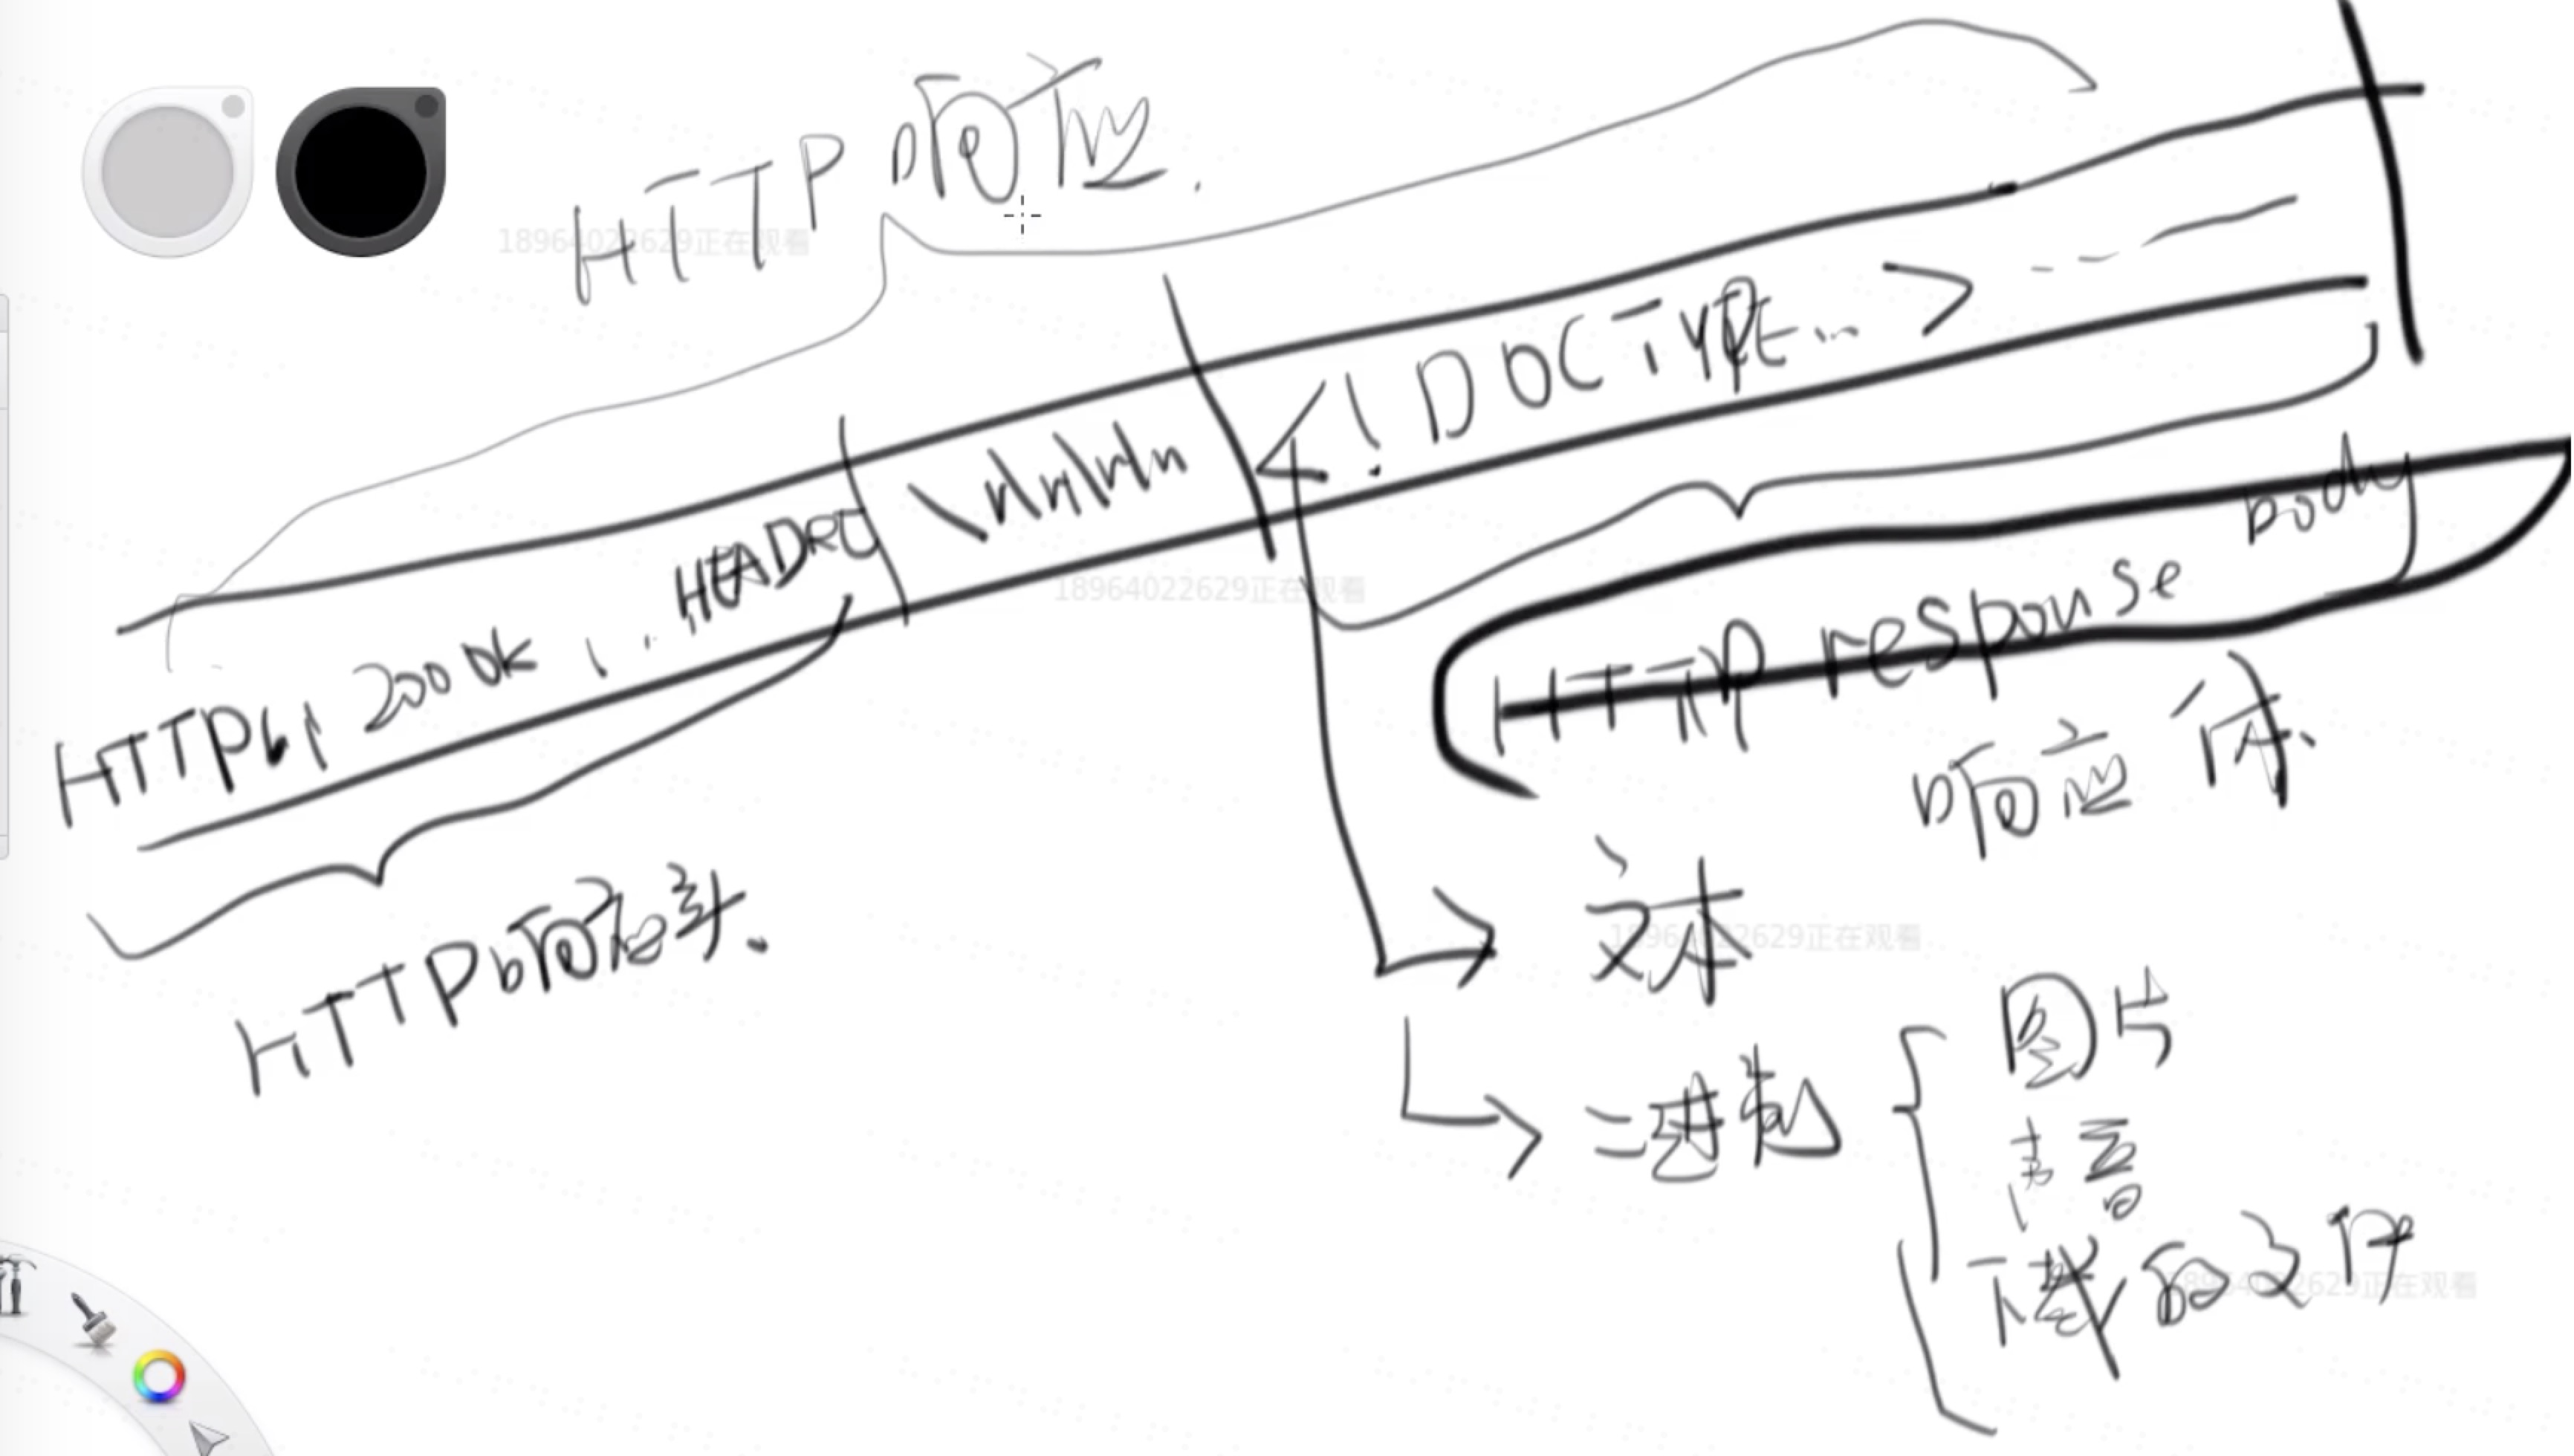 HTTP 响应.
18964022629正在观看
HTTP1.1 200 OK
\r\n\r\n
<!DOCTYPE... >
18964022629正在观看
HTTP response body
响应体
HTTP响应头
文本
18964022629正在观看
二进制
图片
声音
下载的文件
18964022629正在观看